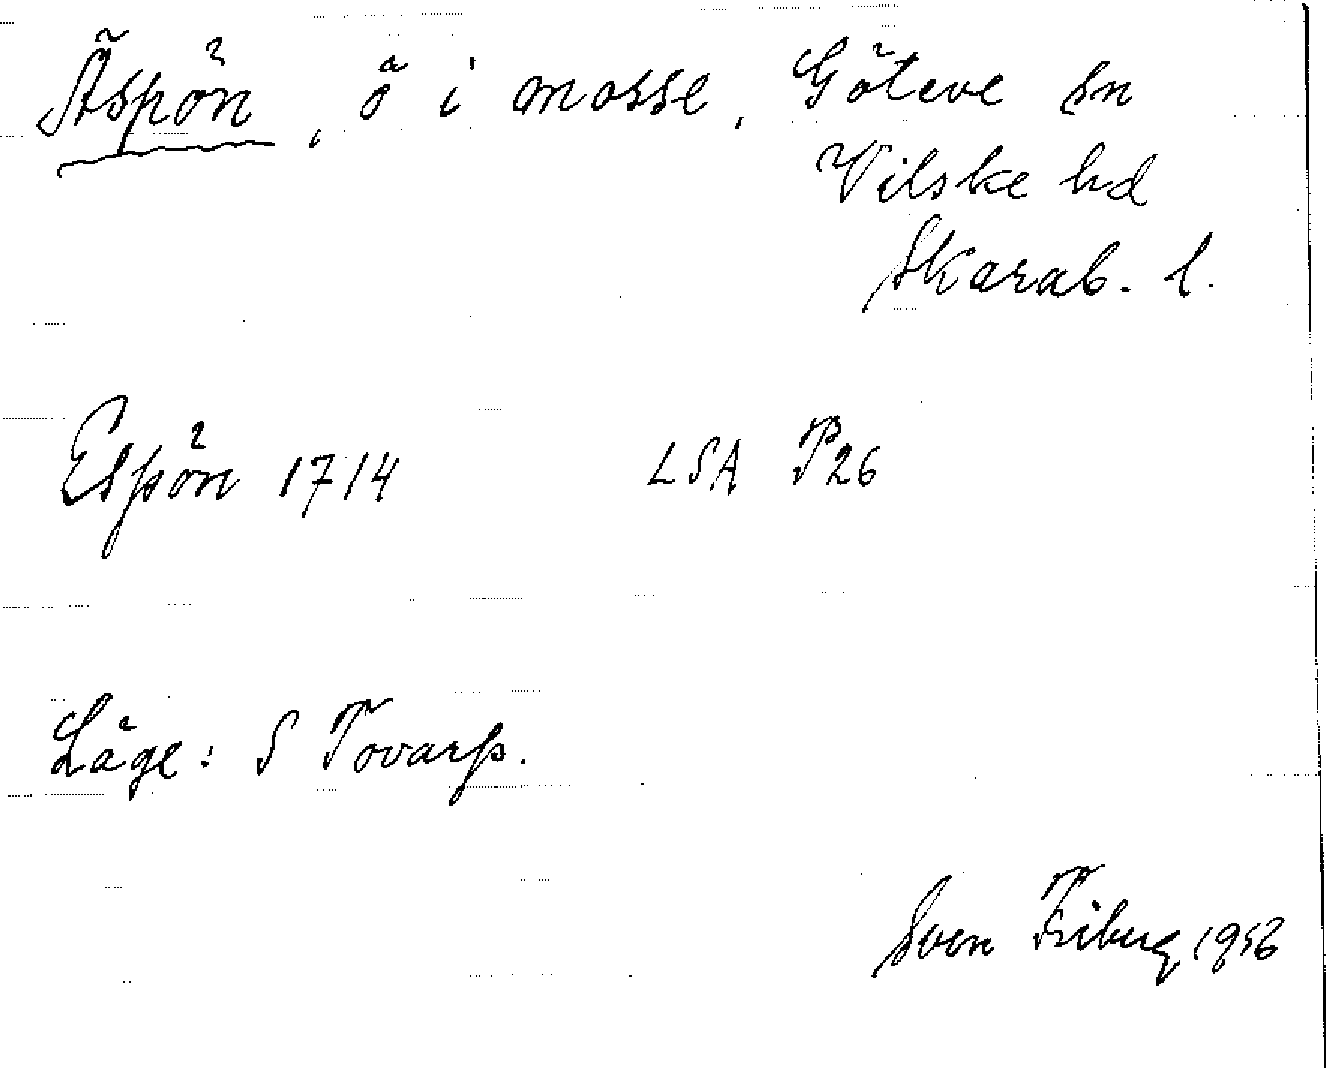 Äspön, ö i mosse, Göteve sn
Vilske hd
Skarab. l.
Espön 1714 LSA P26
Läge: S Tovarp.
Sven Friberg 1956